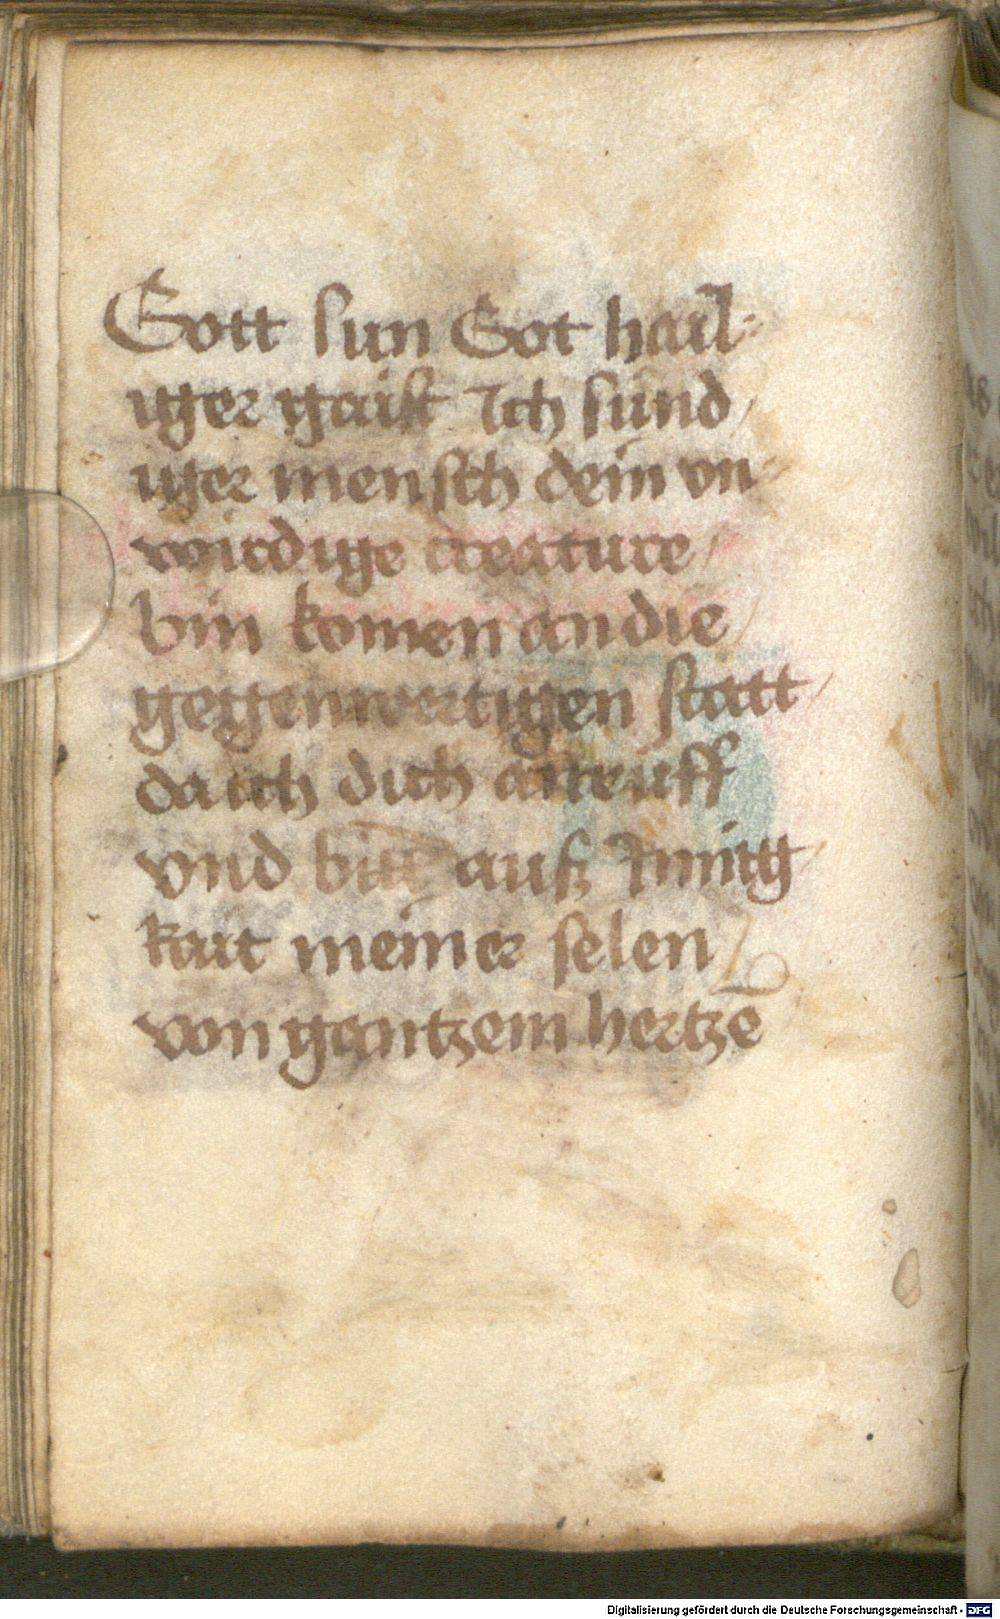 Gott sun Got hail⸗
iger gaist Ich sund /
iger mensch dein vn⸗
wirdige creature /
bin komen an die /
gegenwertigen statt /
da ich dich anruff
vnd bitt auß Innig /
kait meiner selen
von gantzem hertzē
Digitalisierung gefördert durch die Deutsche Forschungsgemeinschaft - DFG